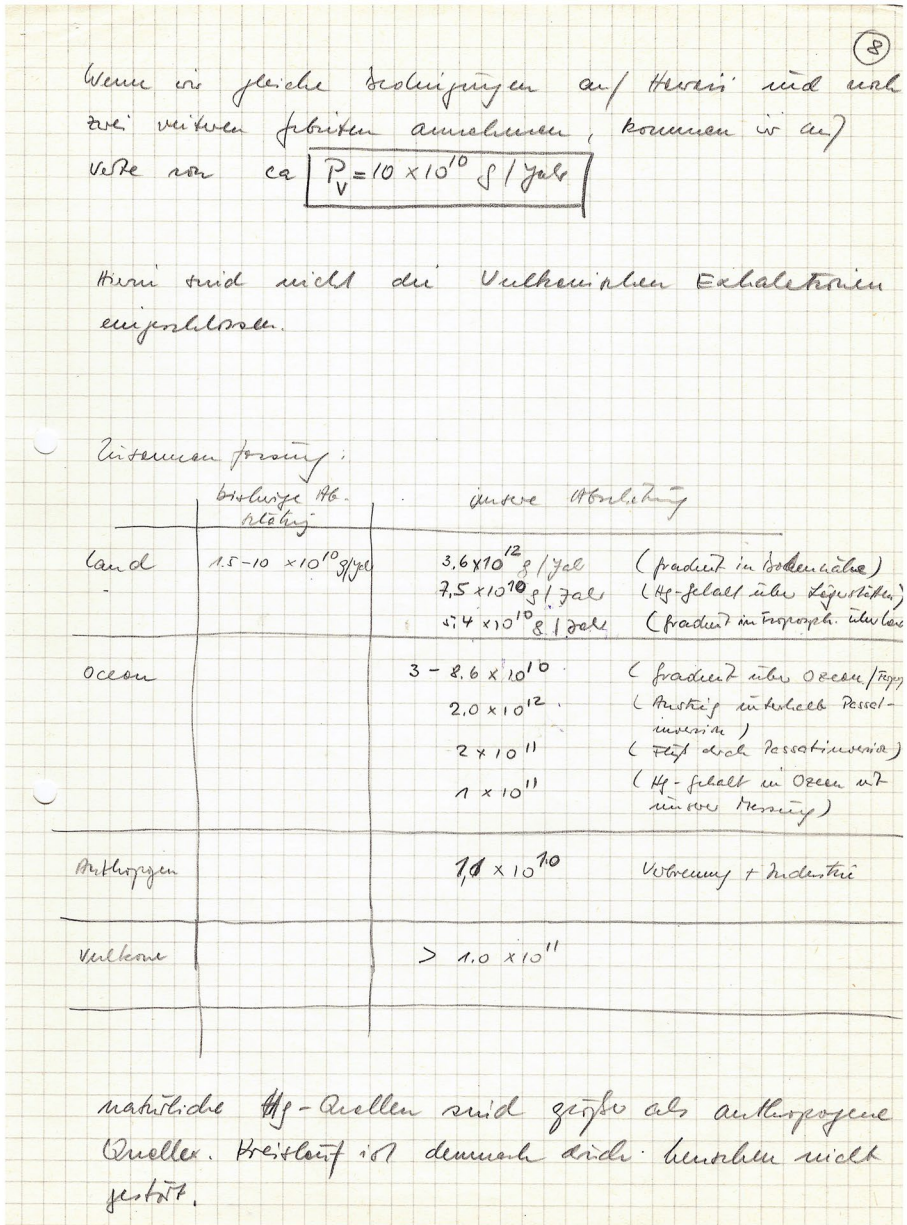 8
Wenn wir gleiche Bedingungen auf Hawaii und noch
zwei weiteren Gebieten annehmen, kommen wir auf
Werte von ca P_V = 10 × 10^10 g / Jahr
Hierin sind nicht die Vulkanischen Exhalationen
eingeschlossen.
Zusammenfassung:
bisherige Ab-
schätzung
unsere Abschätzung
Land 1.5-10 × 10^10 g/Jahr 3,6 × 10^12 g / Jahr (Gradient in Bodennähe)
7,5 × 10^10 g / Jahr (Hg-Gehalt über Lagerstätten)
5,4 × 10^10 g / Jahr (Gradient in Troposph. über Land
Ocean 3 - 8.6 × 10^10 (Gradient über Ozean/
2,0 × 10^12 (Anstieg unterhalb Passat-
inversion)
2 × 10^11 (Fluß durch Passatinversion)
1 × 10^11 (Hg-Gehalt in Ozean mit
unserer Messung)
Anthropogen 1,1 × 10^10 Verbrennung + Industrie
Vulkane > 1.0 × 10^11
natürliche Hg-Quellen sind größer als anthropogene
Quellen. Kreislauf ist demnach durch Menschen nicht
gestört.